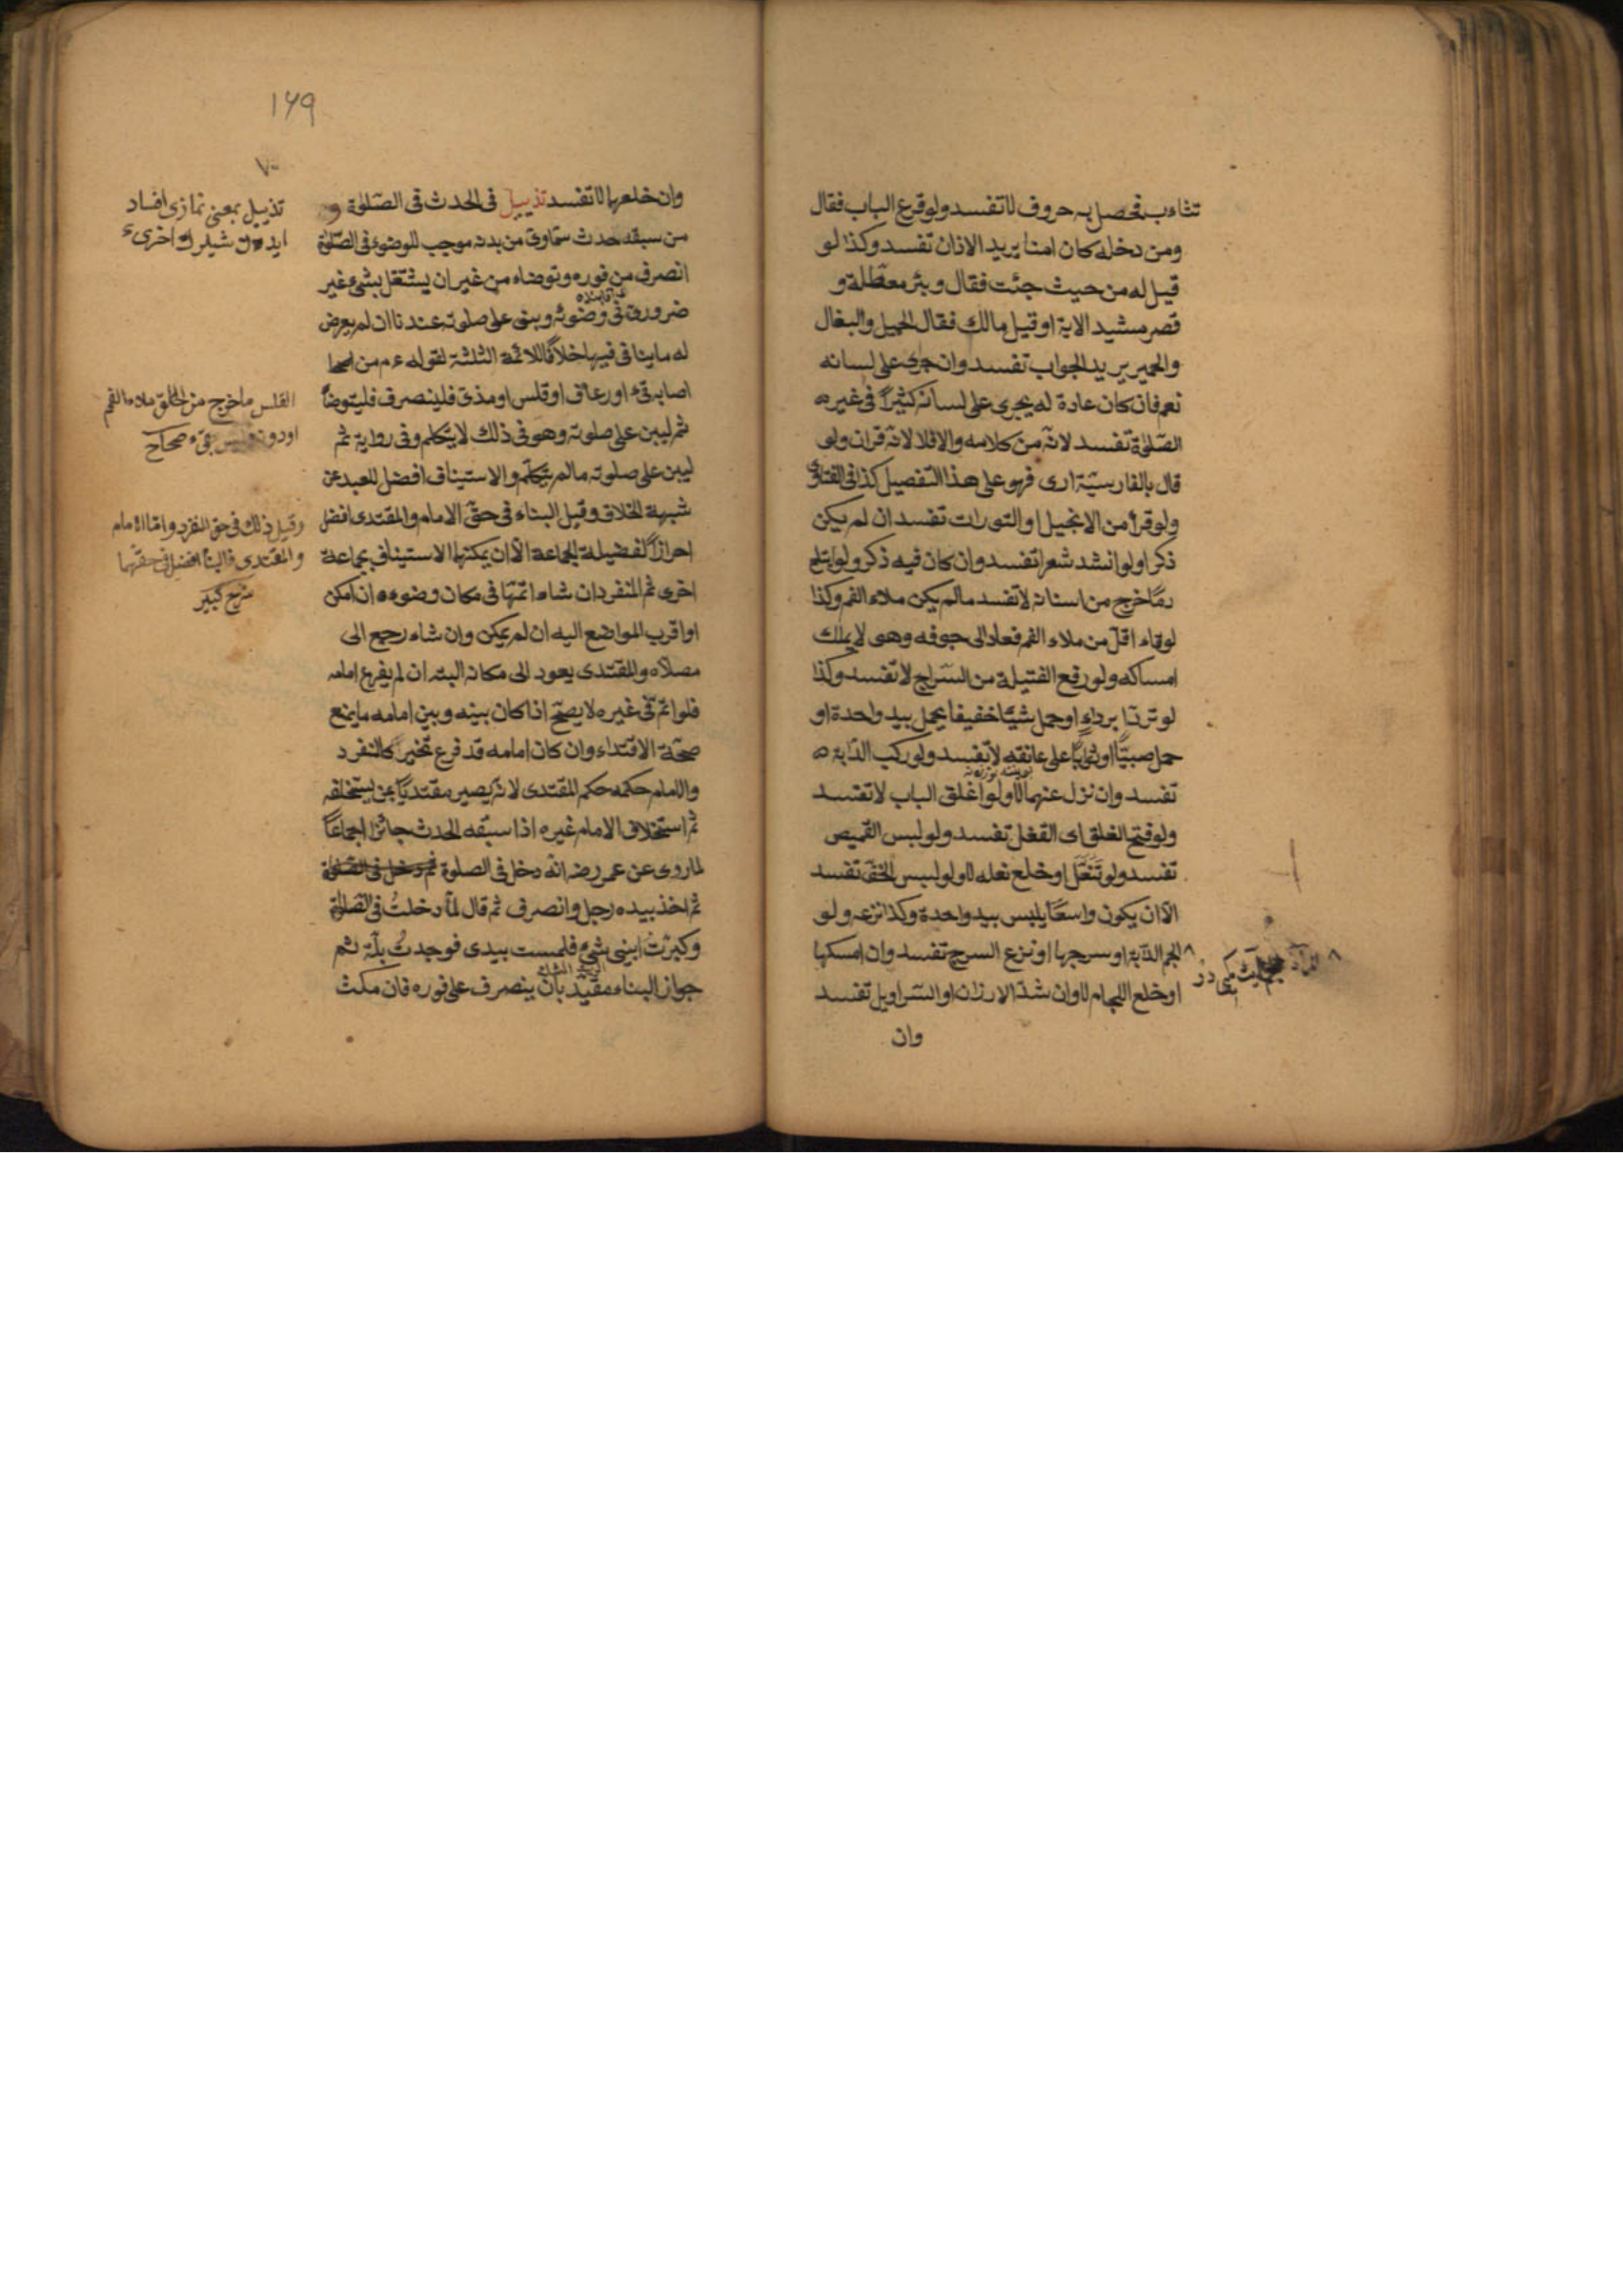 تثاءب فحصل به حروف لا تفسد ولو قرع الباب فقال
ومن دخله كان امنا يريد الاذان تفسد وكذا لو
قيل له من حيث جئت فقال وبئر معطّلة و
قصر مشيد الاية او قيل مالك فقال الخيل والبغال
والحمير يريد الجواب تفسد وان جرى على لسانه
نعم فان كان عادة له يجرى على لسانه كثيرًا فى غيره
الصّلوة تفسد لانّه من كلامه والا فلا لانّه قران ولو
قال بالفارسيّة ارى فهو على هذا التّفصيل كذا فى الفتاوى
ولو قرأ من الانجيل او التورات تفسد ان لم يكن
ذكرا ولو انشد شعرا تفسد وان كان فيه ذكر ولو ابتلع
دمًا خرج من اسنانه لا تفسد ما لم يكن ملاء الفم وكذا
لو قاء اقلّ من ملاء الفم فعاد الى جوفه وهو لا يملك
امساكه ولو رفع الفتيلة من السّراج لا تفسد وكذا
لو تردّا برداءٍ او حمل شيئًا خفيفا يحمل بيد واحدة او
حمل صبيًّا او ثوبًا على عاتقه لا تفسد ولو ركب الدّابة
تفسد وان نزل عنها لا ولو اغلق الباب لا تفسد
ولو فتح الغلق اى القفل تفسد ولو لبس القميص
تفسد ولو تَنَعَّلَ او خلع نعله لا ولو لبس الخفّ تفسد
الّا ان يكون واسعًا يلبس بيد واحدة وكذا نزعه ولو
الجم الدّابة او سرجها او نزع السرج تفسد وان امسكها
او خلع اللجام لا وان شدّ الازار او السّراويل تفسد
وان
١٦٩
٧٠
وان خلعها لا تفسد تذييل فى الحدث فى الصّلوة و
من سبقه حدث سماوىّ من بدنه موجب للوضوء فى الصّلوة
انصرف من فوره وتوضاء من غير ان يشتغل بشئ غير
ضرورىّ فى وضوئه وبنى على صلوته عندنا ان لم يعرض
له ما ينافى فيها خلافًا للائمّة الثلثة لقوله ءم من
اصابه قئ او رعاف او قلس او مذى فلينصرف فليتوضأ
ثم ليبن على صلوته وهو فى ذلك لا يتكلم وفى رواية ثم
ليبن على صلوته ما لم يتكلّم والاستيناف افضل للعبد عن
شبهة الخلاف وقيل البناء فى حقّ الامام والمقتدى افضل
احرازًا لفضيلة الجماعة الّا ان يمكنها الاستيناف بجماعة
اخرى ثم المنفرد ان شاء اتمّها فى مكان وضوءه ان امكن
او اقرب المواضع اليه ان لم يمكن وان شاء رجع الى
مصلّاه والمقتدى يعود الى مكانه البته ان لم يفرغ امامه
فلو اتمّ فى غيره لا يصحّ اذا كان بينه وبين امامه ما يمنع
صحّة الاقتداء وان كان امامه قد فرغ تخير كالمنفرد
والامام حكمه حكم المقتدى لانّه يصير مقتديًا بمن يستخلفه
ثم استخلاف الامام غيره اذا سبقه الحدث جائز اجماعًا
لما روى عن عمر رضه انّه دخل فى الصلوة
ثم اخذ بيده رجل وانصرف ثم قال لمّا دخلتُ فى الصّلوة
وكبّرت رابنى شئ فلمست بيدى فوجدتُ بلّة ثم
جواز البناء مقيّد بان ينصرف على فوره فان مكث
تذييل بمعنى نمازى افساد
القلس ما خرج من الحلق ملاء الفم
او دونه وليس بقئ صحاح
وقيل ذلك فى حق المنفرد وامّا الامام
والمقتدى فالبنأ افضل فى حقهما
شرح كبير